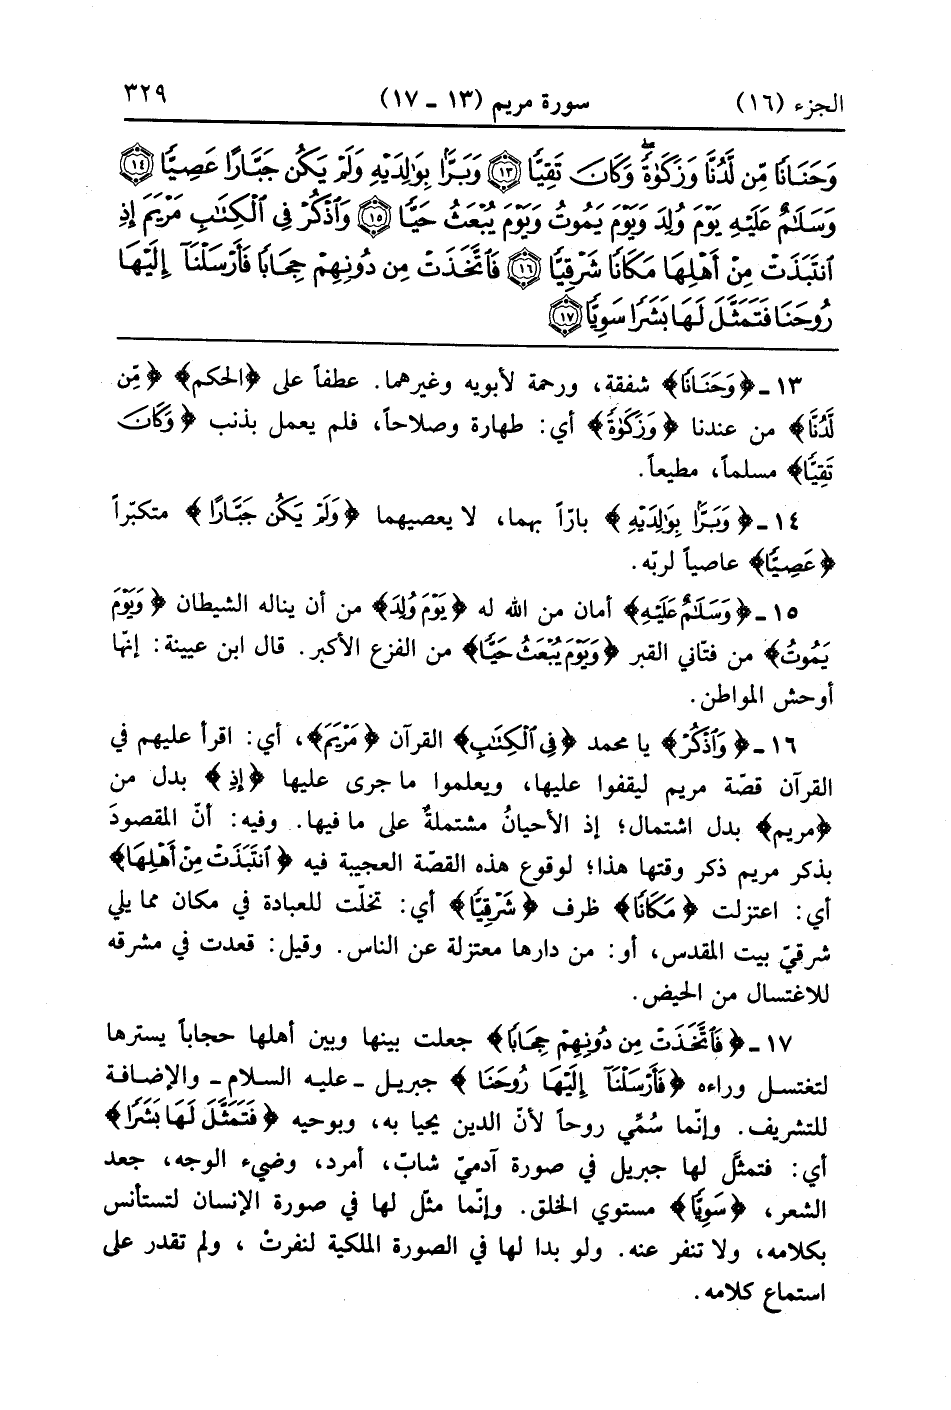 الجزء (١٦) سورة مريم (١٣ - ١٧) ٣٢٩
وَحَنَانًا مِّن لَّدُنَّا وَزَكَوٰةً ۖ وَكَانَ تَقِيًّا ﴿١٣﴾ وَبَرًّۢا بِوَٰلِدَيْهِ وَلَمْ يَكُن جَبَّارًا عَصِيًّا ﴿١٤﴾
وَسَلَـٰمٌ عَلَيْهِ يَوْمَ وُلِدَ وَيَوْمَ يَمُوتُ وَيَوْمَ يُبْعَثُ حَيًّا ﴿١٥﴾ وَٱذْكُرْ فِى ٱلْكِتَـٰبِ مَرْيَمَ إِذِ
ٱنتَبَذَتْ مِنْ أَهْلِهَا مَكَانًا شَرْقِيًّا ﴿١٦﴾ فَٱتَّخَذَتْ مِن دُونِهِمْ حِجَابًا فَأَرْسَلْنَآ إِلَيْهَا
رُوحَنَا فَتَمَثَّلَ لَهَا بَشَرًا سَوِيًّا ﴿١٧﴾
١٣ - ﴿وَحَنَانًا﴾ شفقة، ورحمة لأبويه وغيرهما. عطفاً على ﴿الحكم﴾ ﴿مِّن
لَّدُنَّا﴾ من عندنا ﴿وَزَكَوٰةً﴾ أي: طهارة وصلاحاً، فلم يعمل بذنب ﴿وَكَانَ
تَقِيًّا﴾ مسلماً، مطيعاً.
١٤ - ﴿وَبَرًّۢا بِوَٰلِدَيْهِ﴾ بارّاً بهما، لا يعصيهما ﴿وَلَمْ يَكُن جَبَّارًا﴾ متكبّراً
﴿عَصِيًّا﴾ عاصياً لربّه.
١٥ - ﴿وَسَلَـٰمٌ عَلَيْهِ﴾ أمان من الله له ﴿يَوْمَ وُلِدَ﴾ من أن يناله الشيطان ﴿وَيَوْمَ
يَمُوتُ﴾ من فتّاني القبر ﴿وَيَوْمَ يُبْعَثُ حَيًّا﴾ من الفزع الأكبر. قال ابن عيينة: إنّها
أوحش المواطن.
١٦ - ﴿وَٱذْكُرْ﴾ يا محمد ﴿فِى ٱلْكِتَـٰبِ﴾ القرآن ﴿مَرْيَمَ﴾، أي: اقرأ عليهم في
القرآن قصّة مريم ليقفوا عليها، ويعلموا ما جرى عليها ﴿إِذِ﴾ بدل من
﴿مريم﴾ بدل اشتمال؛ إذ الأحيانُ مشتملةٌ على ما فيها. وفيه: أنّ المقصودَ
بذكر مريم ذكر وقتها هذا؛ لوقوع هذه القصّة العجيبة فيه ﴿ٱنتَبَذَتْ مِنْ أَهْلِهَا﴾
أي: اعتزلت ﴿مَكَانًا﴾ ظرف ﴿شَرْقِيًّا﴾ أي: تخلّت للعبادة في مكان مما يلي
شرقيّ بيت المقدس، أو: من دارها معتزلة عن الناس. وقيل: قعدت في مشرقه
للاغتسال من الحيض.
١٧ - ﴿فَٱتَّخَذَتْ مِن دُونِهِمْ حِجَابًا﴾ جعلت بينها وبين أهلها حجاباً يسترها
لتغتسل وراءه ﴿فَأَرْسَلْنَآ إِلَيْهَا رُوحَنَا﴾ جبريل - عليه السلام - والإضافة
للتشريف. وإنّما سُمِّي روحاً لأنّ الدين يحيا به، وبوحيه ﴿فَتَمَثَّلَ لَهَا بَشَرًا﴾
أي: فتمثَّل لها جبريل في صورة آدميّ شابّ، أمرد، وضيء الوجه، جعد
الشعر، ﴿سَوِيًّا﴾ مستوي الخلق. وإنّما مثّل لها في صورة الإنسان لتستأنس
بكلامه، ولا تنفر عنه. ولو بدا لها في الصورة الملكية لنفرتْ، ولم تقدر على
استماع كلامه.